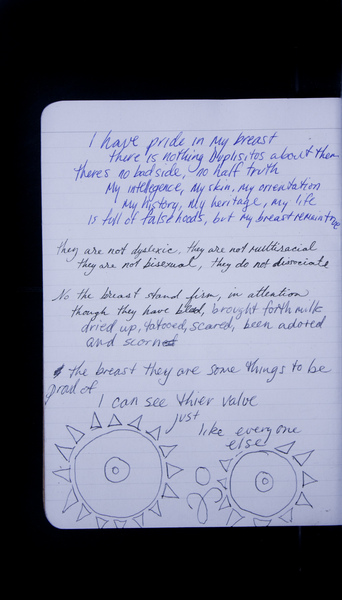 I have pride in my breast
there is nothing Duplisitos about them
theres no bad side, no half truth
My intellegence, My skin, my orientation
My history, My heritage, my life
is full of false hoods, but my breast remain true
they are not dyslexic, they are not multiracial
they are not bisexual, they do not dissociate
No the breast stand firm, in attention
though they have bled, brought forth milk
dried up, tatooed, scared, been adored
and scorned
the breast they are some things to be
proud of
I can see thier value
just
like everyone
else